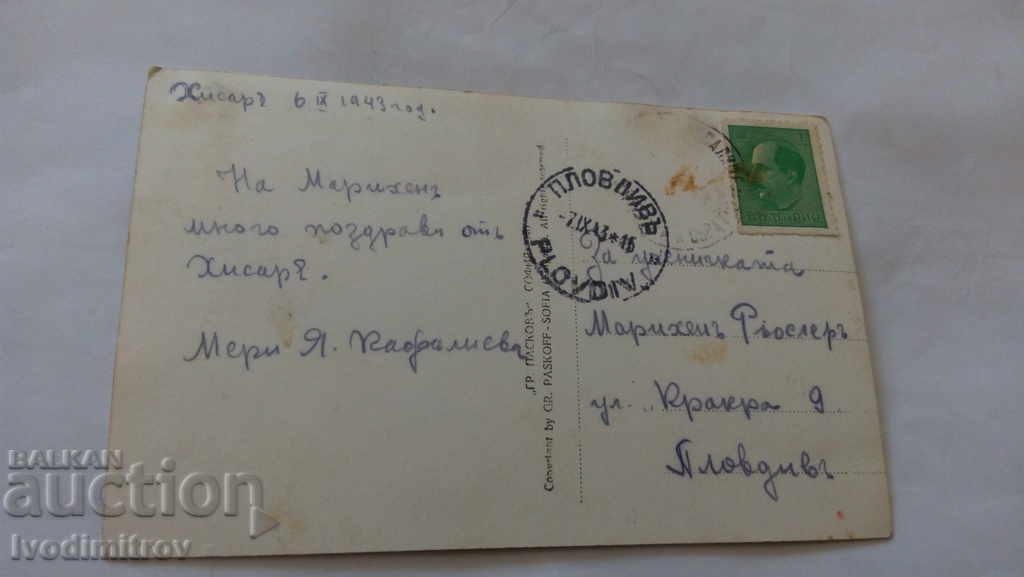 Хисаръ 6 IX 1943 год.
На Марихенъ
много поздрави отъ
Хисаръ.
Мери Я.
"ГР. ПАСКОВЪ" СОФИЯ
Copyright by GR. PASKOFF-SOFIA
ПЛОВДИВЪ
-7.IX.43*16
PLOVDIV
За ученичката
Марихенъ Рюслеръ
ул. „Кракра 9
Пловдивъ
BALKAN
auction
Ivodimitrov